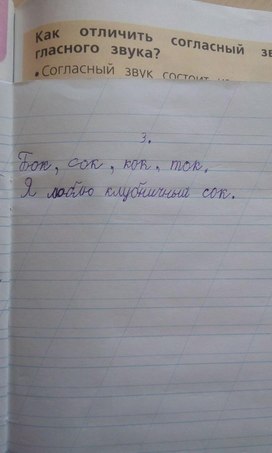 Как отличить согласный зв
гласного звука?
• Согласный звук состоит
3.
Бок, сок, кок, ток,
Я люблю клубничный сок.